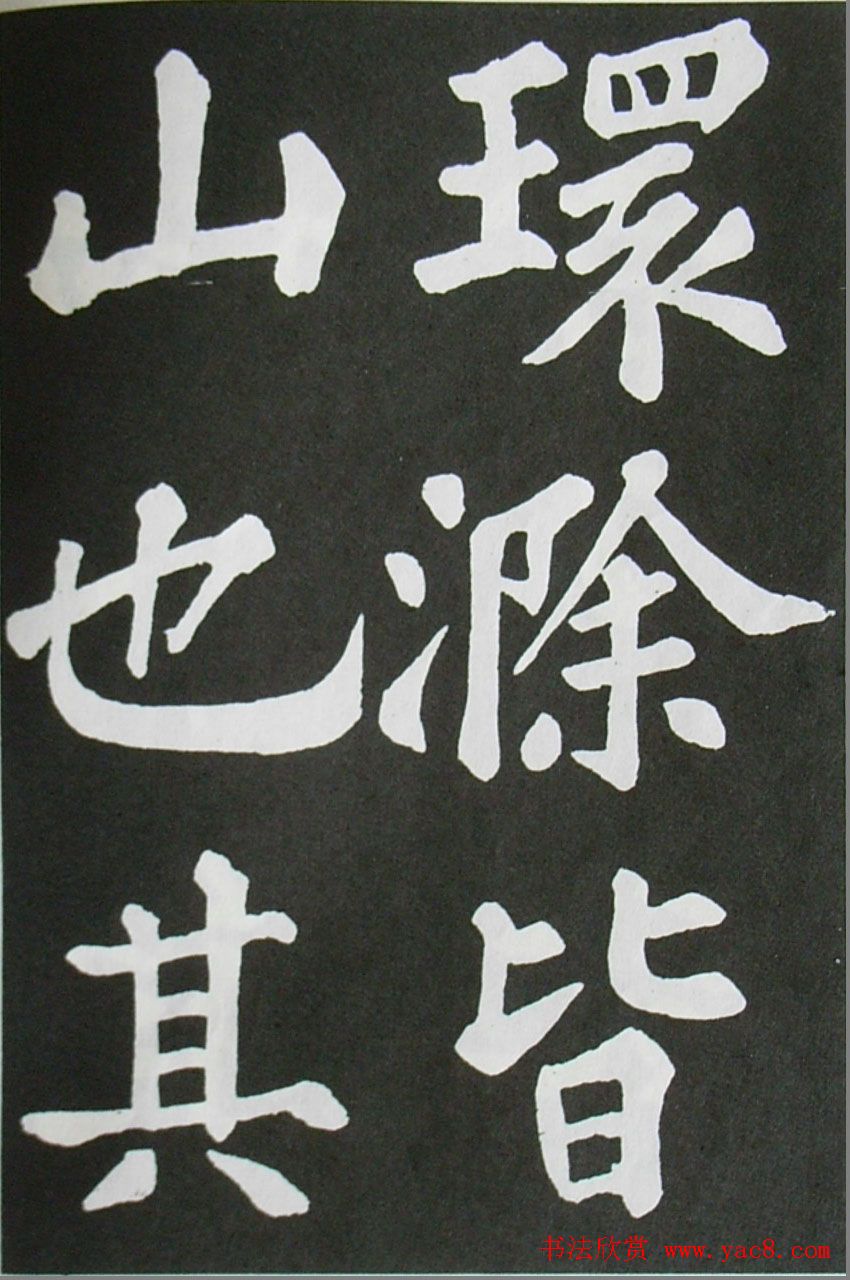 環滁皆
山也其
书法欣赏 www.yac8.com